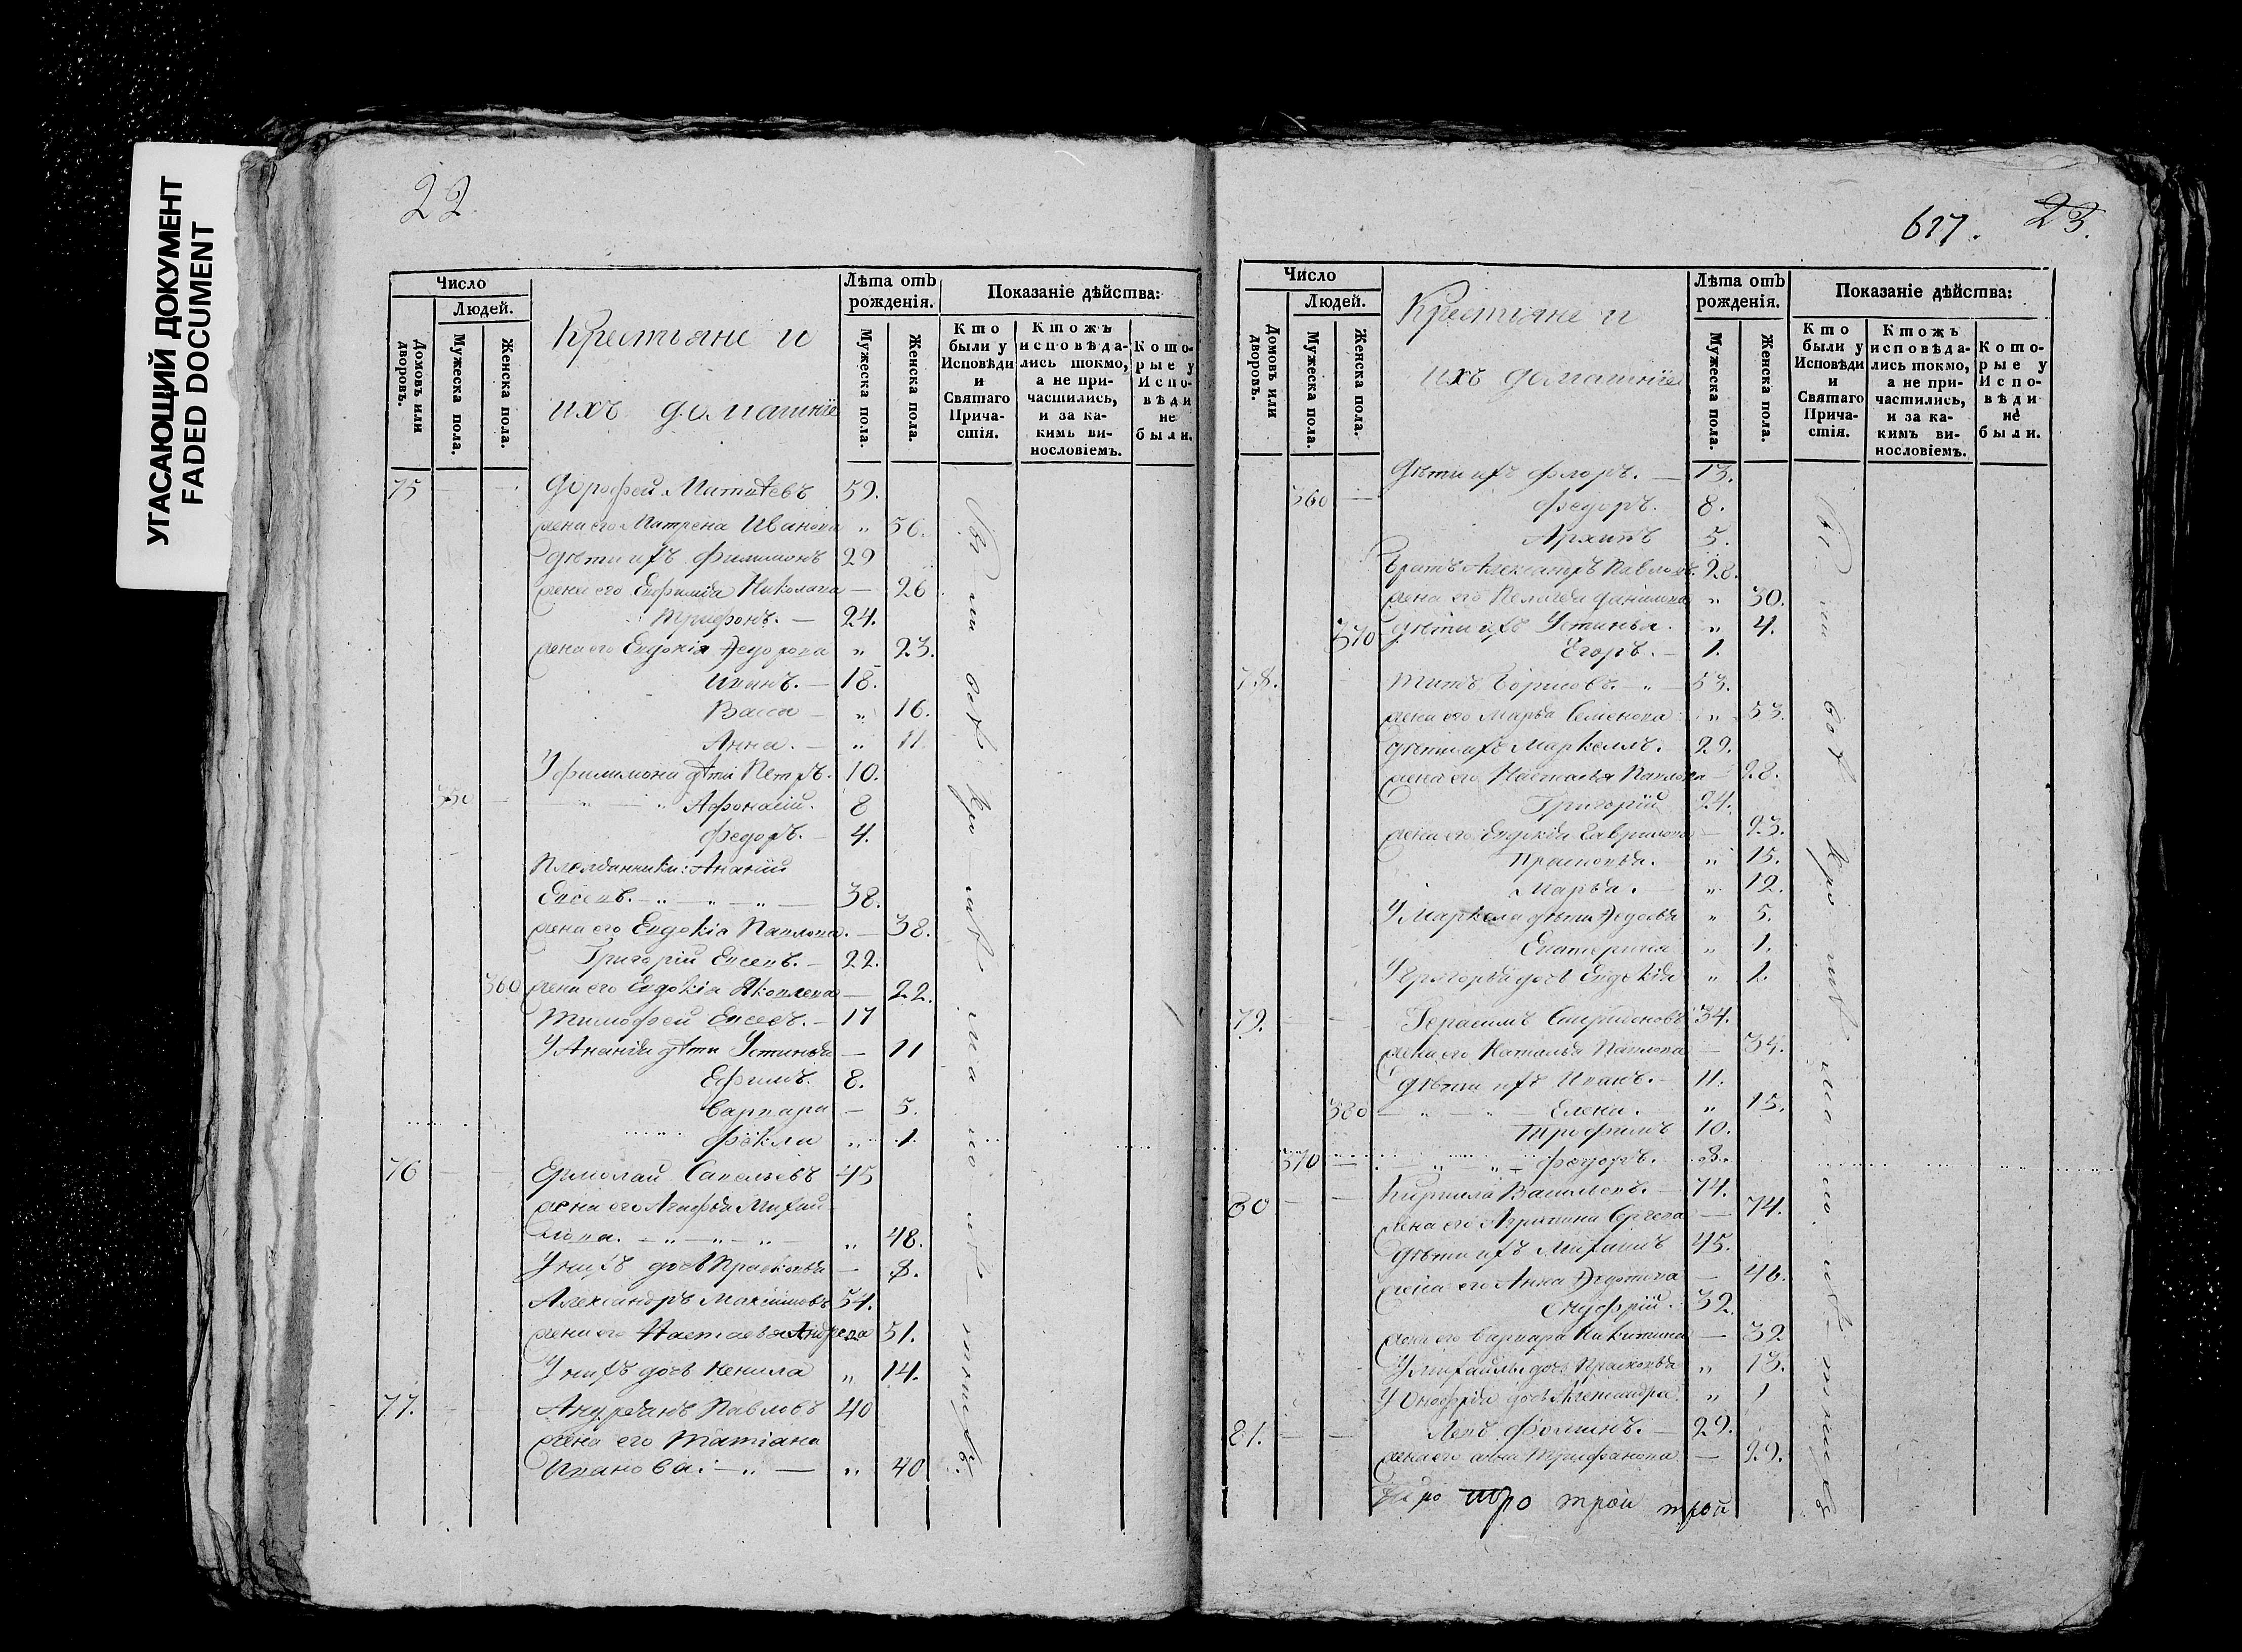 УГАСАЮЩИЙ ДОКУМЕНТ
FADED DOCUMENT
22.
Число
Людей.
Домовъ или дворовъ.
Мужеска пола.
Женска пола.
Крестьяне и
ихъ домашніе
Лѣта отъ рожденія.
Мужеска пола.
Женска пола.
Показаніе дѣйства:
Кто были у Исповѣди и Святаго Причастія.
Ктожъ исповѣдались токмо, а не причастились, и за какимъ винословіемъ.
Которые у Исповѣди не были.
75 Дорофей Матвѣевъ 59.
жена его Матрена Иванова „ 56.
дѣти ихъ Филимонъ 29
жена его Ефимія Николаева — 26
Трифонъ. — 24.
жена его Евдокія Федорова „ 23.
Иванъ. — 18.
Васса — „ 16.
Анна. — „ 11.
У Филимона дѣти Петръ. 10.
350 — „ — „ Афонасій. 8
Федоръ. — 4.
Ананій
Евсевъ. — „ — „ — „ — 38.
жена его Евдокія Павлова. — 38.
Григорій Евсевъ. — 22.
360 жена его Евдокія Яковлева — 22.
Тимофей Евсевъ. — 17
У Ананія дѣти Устинья — 11
Ефимъ. 8.
Варвара — 5.
Фекла „ 1.
76 Ермолай Савельевъ 45
жена его Агафья Михай
лова. — „ — „ — „ — „ 48.
У нихъ дочь Прасковья — 8.
Александръ Максимовъ 54.
жена его Настасья Андреева 51.
У нихъ дочь „ 14.
77. Андреянъ Павловъ 40
жена его Татіана
Иванова. — „ — „ 40
617. 23.
Число
Людей.
Домовъ или дворовъ.
Мужеска пола.
Женска пола.
Крестьяне и
ихъ домашніе
Лѣта отъ рожденія.
Мужеска пола.
Женска пола.
Показаніе дѣйства:
Кто были у Исповѣди и Святаго Причастія.
Ктожъ исповѣдались токмо, а не причастились, и за какимъ винословіемъ.
Которые у Исповѣди не были.
дѣти ихъ Флоръ. — 13.
360 — Федоръ. 8.
Архипъ 5.
братъ Александръ Павловъ. 28.
жена его Пелагея Данилова „ 30.
370 дѣти ихъ Устинья. „ 4.
Егоръ. — 1.
78. Титъ Борисовъ. — „ — 53.
жена его Марья Семенова „ 53.
дѣти ихъ Маркеллъ. 29.
жена его Настасья Павлова — 28.
Григорій 24.
жена его Евдокія Гаврилова — 23.
Прасковья. — „ 15.
Марья. — „ 12.
У Маркела дѣти Федосья „ 5.
Екатерина „ 1.
У Григорья дочь Евдокія „ 1.
79. Герасимъ Спиридоновъ 34.
жена его Наталья Павлова — 34.
дѣти ихъ Иванъ. — 11.
380 — „ — „ — Елена. „ 15.
Трофимъ 10.
370 — „ „ Федоръ. — 8.
80 Кирила Васильевъ. — 74.
жена его Агрипина Сергеева — 74.
дѣти ихъ Михаилъ 45.
жена его Анна Федотова — 46.
Онуфрій. 32.
жена его Варвара Никитина — 32
У Михайлы дочь Прасковья „ 13.
У Онофрія дочь Александра. „ 1
81. Левъ Фоминъ. — 29.
жена его Анна Трифонова — 29.
тро трой трой